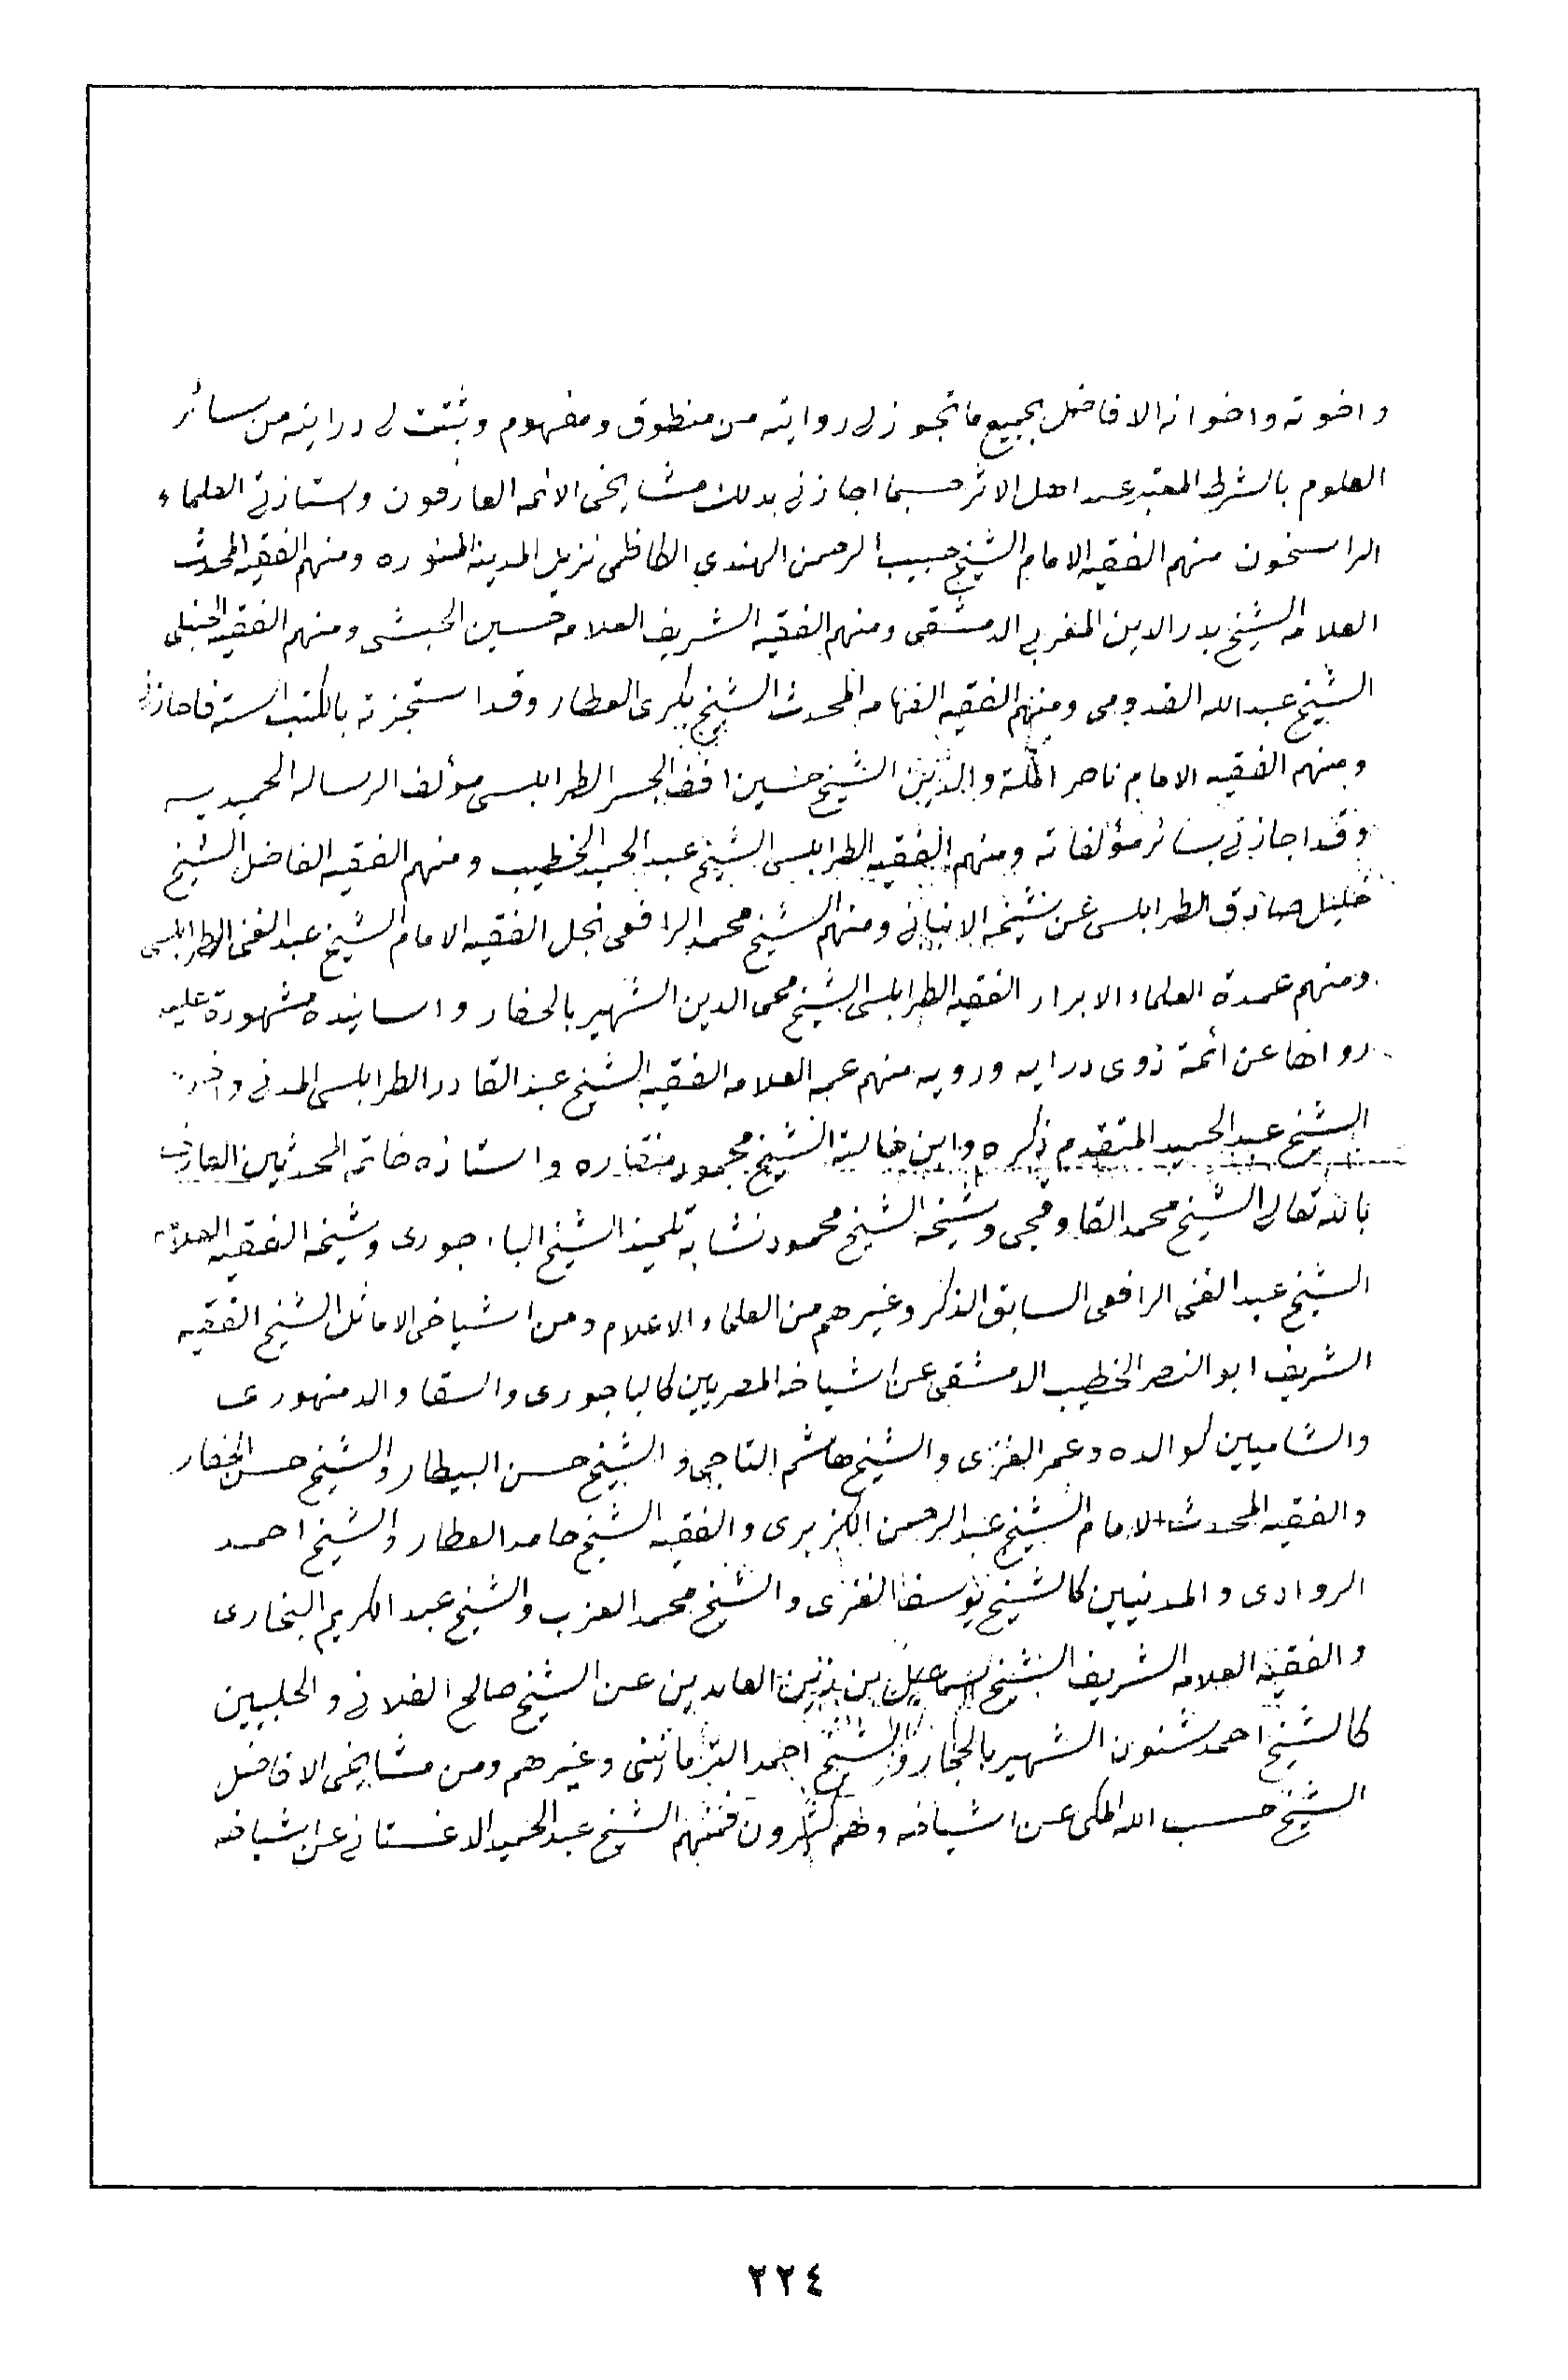 واخوته واخوانه الافاضل بجميع ما تجوز لي روايته من منطوق ومفهوم وثبتت لي درايته من سائر
العلوم بالشرط المعتبر عند اهل الاثر حسبما اجازني بذلك مشايخي الائمه العارفون واستاذتي العلماء
الراسخون منهم الفقيه الامام الشيخ حبيب الرحمن الهندي الكاظمى نزيل المدينة المنوره ومنهم الفقيه المحدث
العلامه الشيخ بدر الدين المغربي الدمشقى ومنهم الفقيه الشريف العلامه حسين الحبشى ومنهم الفقيه الحنبلى
الشيخ عبد الله القدومى ومنهم الفقيه الفهامه المحدث الشيخ بكرى العطار وقد استجزته بالكتب الستة فاجازني
ومنهم الفقيه الامام ناصر الملة والدين الشيخ حسين افندى الجسر الطرابلسى مؤلف الرساله الحميديه
وقد اجازني بسائر مؤلفاته ومنهم الفقيه الطرابلسى الشيخ عبد الحميد الخطيب ومنهم الفقيه الفاضل الشيخ
خليل صادق الطرابلسى عن شيخه الانبابي ومنهم الشيخ محمد الرافعى نجل الفقيه الامام الشيخ عبد الغنى الطرابلسى
ومنهم عمدة العلماء الابرار الفقيه الطرابلسى الشيخ محى الدين الشهير بالحفار واسانيده مشهورة عليه
رواها عن ائمة ذوى درايه ورويه منهم عمه العلامه الفقيه الشيخ عبد القادر الطرابلسى المدني
الشيخ عبد الحميد المتقدم ذكره وابن خالته الشيخ محمود منقاره واستاذه خاتمه المحدثين العارف
بالله تعالى الشيخ محمد القاوقجى وشيخه الشيخ محمود نشابه تلميذ الشيخ الباجورى وشيخه الفقيه العلامه
الشيخ عبد الغنى الرافعى السابق الذكر وغيرهم من العلماء الاعلام ومن اشياخى الاماثل الشيخ الفقيه
الشريف ابو النصر الخطيب الدمشقى عن اشياخه المصريين كالباجورى والسقا والدمنهورى
والشاميين كوالده وعمر الغزى والشيخ هاشم التاجي والشيخ حسن البيطار والشيخ حسن الحفار
والفقيه المحدث الامام الشيخ عبد الرحمن الكزبرى والفقيه الشيخ حامد العطار والشيخ احمد
الروادى والمدنيين كالشيخ يوسف الغزى والشيخ محمد العزب والشيخ عبد الكريم البخارى
والفقيه العلامه الشريف الشيخ اسماعيل بن زين العابدين عن الشيخ صالح الفلاني والحلبيين
كالشيخ احمد شنون الشهير بالحجار والشيخ احمد الترمانينى وغيرهم ومن مشايخى الافاضل
الشيخ حسب الله المكى عن اشياخه وهم كثيرون فمنهم الشيخ عبد الحميد الداغستاني عن اشياخه
٢٢٤